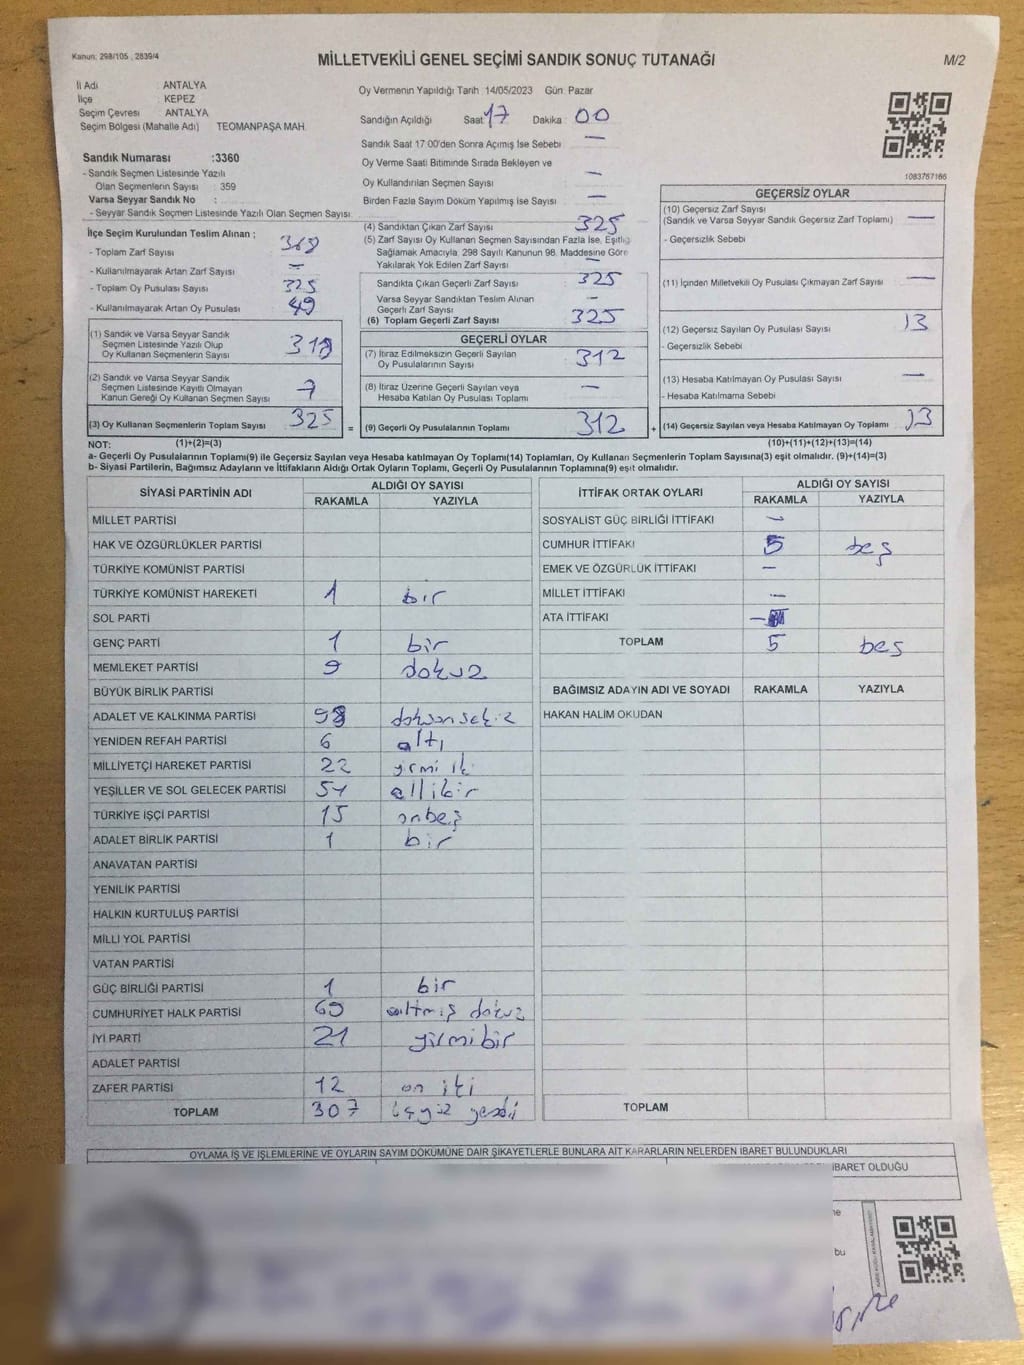 Kanun: 298/105 , 2839/4
MİLLETVEKİLİ GENEL SEÇİMİ SANDIK SONUÇ TUTANAĞI
M/2
İl Adı ANTALYA
İlçe KEPEZ
Seçim Çevresi ANTALYA
Seçim Bölgesi (Mahalle Adı) TEOMANPAŞA MAH.
Sandık Numarası :3360
- Sandık Seçmen Listesinde Yazılı
Olan Seçmenlerin Sayısı : 359
Varsa Seyyar Sandık No :
- Seyyar Sandık Seçmen Listesinde Yazılı Olan Seçmen Sayısı:
İlçe Seçim Kurulundan Teslim Alınan ;
- Toplam Zarf Sayısı
- Kullanılmayarak Artan Zarf Sayısı —
- Toplam Oy Pusulası Sayısı 325
- Kullanılmayarak Artan Oy Pusulası 49
(1) Sandık ve Varsa Seyyar Sandık
Seçmen Listesinde Yazılı Olup
Oy Kullanan Seçmenlerin Sayısı 318
(2) Sandık ve Varsa Seyyar Sandık
Seçmen Listesinde Kayıtlı Olmayan
Kanun Gereği Oy Kullanan Seçmen Sayısı 7
(3) Oy Kullanan Seçmenlerin Toplam Sayısı 325 =
Oy Vermenin Yapıldığı Tarih :14/05/2023 Gün :Pazar
Sandığın Açıldığı Saat: 17 Dakika : 00
Sandık Saat 17:00'den Sonra Açılmış İse Sebebi —
Oy Verme Saati Bitiminde Sırada Bekleyen ve
Oy Kullandırılan Seçmen Sayısı —
Birden Fazla Sayım Döküm Yapılmış ise Sayısı —
(4) Sandıktan Çıkan Zarf Sayısı 325
(5) Zarf Sayısı Oy Kullanan Seçmen Sayısından Fazla İse, Eşitliği
Sağlamak Amacıyla, 298 Sayılı Kanunun 98. Maddesine Göre
Yakılarak Yok Edilen Zarf Sayısı —
Sandıkta Çıkan Geçerli Zarf Sayısı 325
Varsa Seyyar Sandıktan Teslim Alınan
Geçerli Zarf Sayısı —
(6) Toplam Geçerli Zarf Sayısı 325
GEÇERLİ OYLAR
(7) İtiraz Edilmeksizin Geçerli Sayılan
Oy Pusulalarının Sayısı 312
(8) İtiraz Üzerine Geçerli Sayılan veya
Hesaba Katılan Oy Pusulası Toplamı —
(9) Geçerli Oy Pusulalarının Toplamı 312 +
1083757166
GEÇERSİZ OYLAR
(10) Geçersiz Zarf Sayısı
(Sandık ve Varsa Seyyar Sandık Geçersiz Zarf Toplamı) —
- Geçersizlik Sebebi
(11) İçinden Milletvekili Oy Pusulası Çıkmayan Zarf Sayısı —
(12) Geçersiz Sayılan Oy Pusulası Sayısı 13
- Geçersizlik Sebebi
(13) Hesaba Katılmayan Oy Pusulası Sayısı —
- Hesaba Katılmama Sebebi
(14) Geçersiz Sayılan veya Hesaba Katılmayan Oy Toplamı 13
NOT: (1)+(2)=(3) (10)+(11)+(12)+(13)=(14)
a- Geçerli Oy Pusulalarının Toplamı(9) ile Geçersiz Sayılan veya Hesaba katılmayan Oy Toplamı(14) Toplamları, Oy Kullanan Seçmenlerin Toplam Sayısına(3) eşit olmalıdır. (9)+(14)=(3)
b- Siyasi Partilerin, Bağımsız Adayların ve İttifakların Aldığı Ortak Oyların Toplamı, Geçerli Oy Pusulalarının Toplamına(9) eşit olmalıdır.
SİYASİ PARTİNİN ADI ALDIĞI OY SAYISI
RAKAMLA YAZIYLA
MİLLET PARTİSİ
HAK VE ÖZGÜRLÜKLER PARTİSİ
TÜRKİYE KOMÜNİST PARTİSİ
TÜRKİYE KOMÜNİST HAREKETİ 1 bir
SOL PARTİ
GENÇ PARTİ 1 bir
MEMLEKET PARTİSİ 9 dokuz
BÜYÜK BİRLİK PARTİSİ
ADALET VE KALKINMA PARTİSİ 98 doksansekiz
YENİDEN REFAH PARTİSİ 6 altı
MİLLİYETÇİ HAREKET PARTİSİ 22 yirmi iki
YEŞİLLER VE SOL GELECEK PARTİSİ 51 ellibir
TÜRKİYE İŞÇİ PARTİSİ 15 onbeş
ADALET BİRLİK PARTİSİ 1 bir
ANAVATAN PARTİSİ
YENİLİK PARTİSİ
HALKIN KURTULUŞ PARTİSİ
MİLLİ YOL PARTİSİ
VATAN PARTİSİ
GÜÇ BİRLİĞİ PARTİSİ 1 bir
CUMHURİYET HALK PARTİSİ 69 altmış dokuz
İYİ PARTİ 21 yirmibir
ADALET PARTİSİ
ZAFER PARTİSİ 12 on iki
TOPLAM 307 üçyüz yedi
İTTİFAK ORTAK OYLARI ALDIĞI OY SAYISI
RAKAMLA YAZIYLA
SOSYALİST GÜÇ BİRLİĞİ İTTİFAKI —
CUMHUR İTTİFAKI 5 beş
EMEK VE ÖZGÜRLÜK İTTİFAKI —
MİLLET İTTİFAKI —
ATA İTTİFAKI —
TOPLAM 5 beş
BAĞIMSIZ ADAYIN ADI VE SOYADI RAKAMLA YAZIYLA
HAKAN HALİM OKUDAN
TOPLAM
OYLAMA İŞ VE İŞLEMLERİNE VE OYLARIN SAYIM DÖKÜMÜNE DAİR ŞİKAYETLERLE BUNLARA AİT KARARLARIN NELERDEN İBARET BULUNDUKLARI
İBARET OLDUĞU
ne
bu